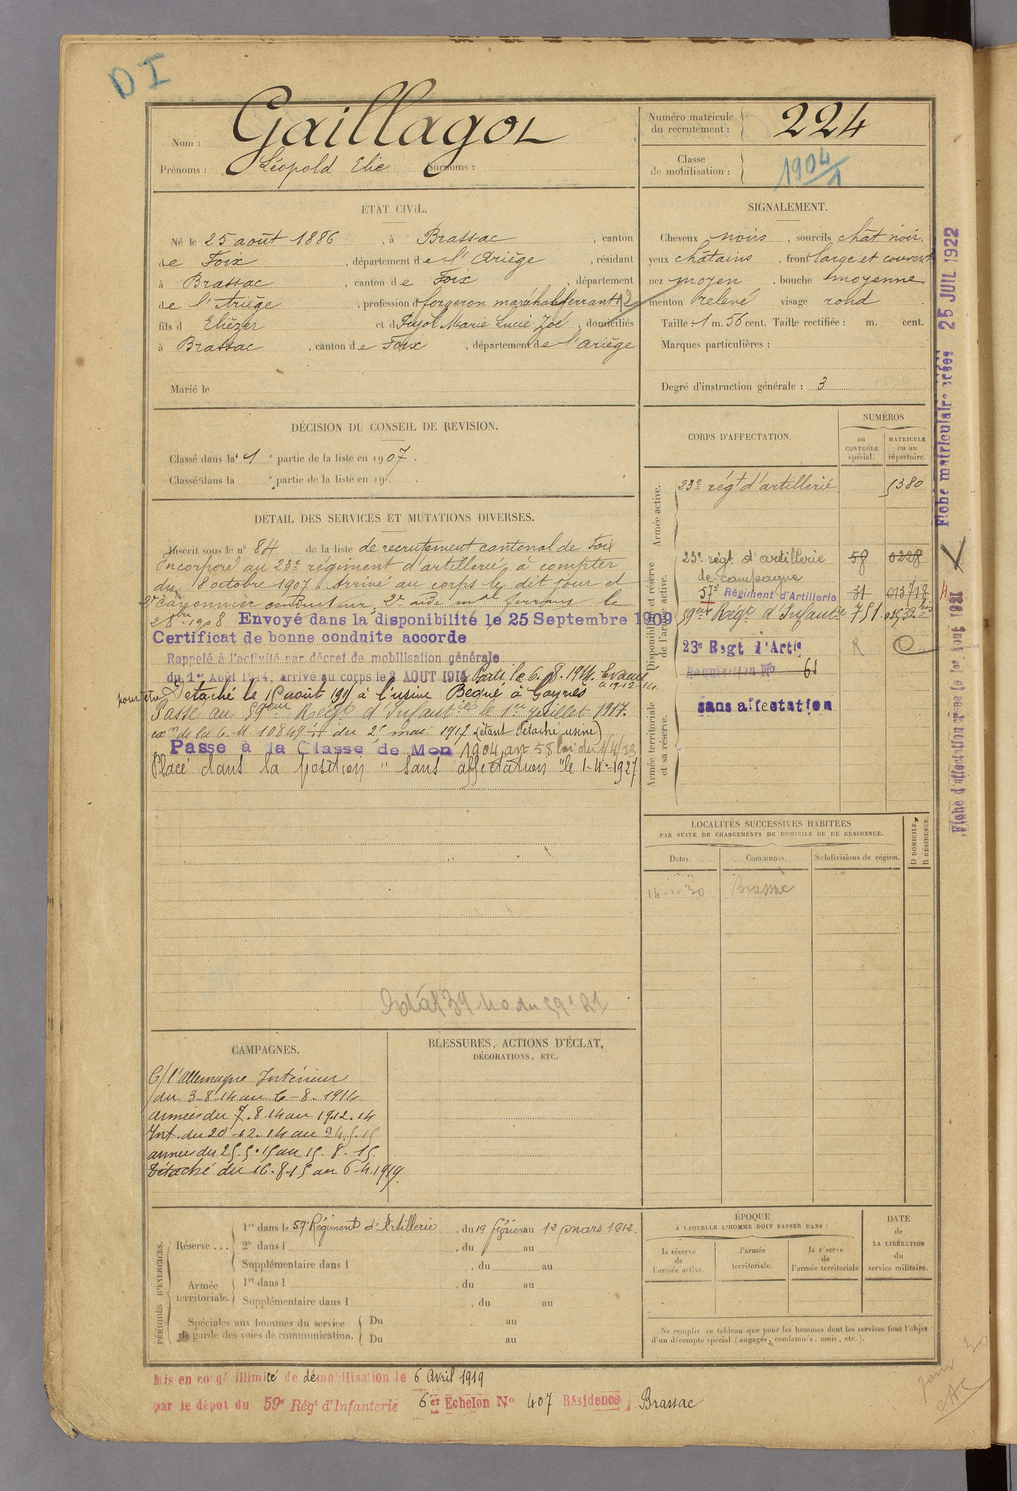 DI
Nom : Gaillagot
Prénoms : Léopold Elie surnoms :
Numéro matricule du recrutement : 224
Classe de mobilisation : 1904/1
ÉTAT CIVIL.
Né le 25 août 1886, à Brassac, canton
de Foix, département de l'Ariège, résidant
à Brassac, canton de Foix, département
de l'Ariège, profession de forgeron maréchal ferrant 2
fils d Eliézer et de Pujol Marie Lucie Zoé, domiciliés
à Brassac, canton de Foix, département de l'ariège
Marié le
SIGNALEMENT.
Cheveux noirs, sourcils chat noir,
yeux châtains, front large et couvert
nez moyen, bouche moyenne
menton relevé visage rond
Taille 1 m. 56 cent. Taille rectifiée : m. cent.
Marques particulières :
Degré d'instruction générale : 3
DÉCISION DU CONSEIL DE REVISION.
Classé dans la 1e partie de la liste en 1907.
Classé dans la e partie de la liste en 19
DÉTAIL DES SERVICES ET MUTATIONS DIVERSES.
Inscrit sous le n° 84 de la liste de recrutement cantonal de Foix
Incorporé au 23e régiment d'artillerie à compter
du 8 octobre 1907 Arrivé au corps le dit jour et
2e canonnier conducteur, 2e aide mal ferrant le
1908 Envoyé dans la disponibilité le 25 Septembre 1909
Certificat de bonne conduite accorde
Rappelé à l'activité par décret de mobilisation générale
du 1er Août 1914, arrivé au corps le 3 AOUT 1914 Parti le 6.8.1914. Evacué
le 19-12-14.
Detaché le 15 août 1915 à l'usine Becque à
Passé au 59eme Régt d'Infantie le 1er juillet 1917.
de la C. M. 10849 du 2 mai 1917 (étant détaché usine)
Passe à la Classe de Mon 1904 art 58 loi du 1/4/23
Placé dans la position "sans affectation" le 1-4-1927
CORPS D'AFFECTATION.
NUMÉROS
au CONTRÔLE spécial.
MATRICULE ou au répertoire.
Armée active.
23e régt d'artillerie 5380
Disponibilité et réserve de l'armée active.
23e régt d'artillerie 58 0228
de campagne
57e Régiment d'Artillerie 31
59eme Régt d'Infante 751
23e Regt d'Artie R
Requisition No 61
sans affectation
Armée territoriale et sa réserve.
Fiche matriculaire créée 25 JUIL 1922
LOCALITÉS SUCCESSIVES HABITÉES
PAR SUITE DE CHANGEMENTS DE DOMICILE OU DE RÉSIDENCE.
Dates. Communes. Subdivisions de région. D DOMICILE. R RÉSIDENCE.
30 Brassac
CAMPAGNES.
C/ l'allemagne Intérieur
du 3-8-14 au 6-8-1914
armées du 7.8.14 au 19.12.14
Int. du 20-12.14 au 24.5.15
armées du 25.5.15 au 15.8.15
Détaché du 16.8.15 au 6-4.1919.
BLESSURES, ACTIONS D'ÉCLAT,
DÉCORATIONS, ETC.
PÉRIODES D'EXERCICES.
Réserve...
1re dans le 57e Régiment d'Artillerie, du 19 février au 12 mars 1912.
2e dans l , du au
Supplémentaire dans l , du au
Armée territoriale.
1re dans l , du au
Supplémentaire dans l , du au
Spéciales aux hommes du service de garde des voies de communication.
Du au
Du au
ÉPOQUE
À LAQUELLE L'HOMME DOIT PASSER DANS :
la réserve de l'armée active.
l'armée territoriale.
la réserve de l'armée territoriale
DATE DE LA LIBÉRATION du service militaire.
Ne remplir ce tableau que pour les hommes dont les services font l'objet
d'un décompte spécial (engagés, condamnés, omis, etc.).
Mis en congé illimité de démobilisation le 6 Avril 1919
par le dépôt du 59e Régt d'Infanterie 6er Echelon No 407 Résidence : Brassac